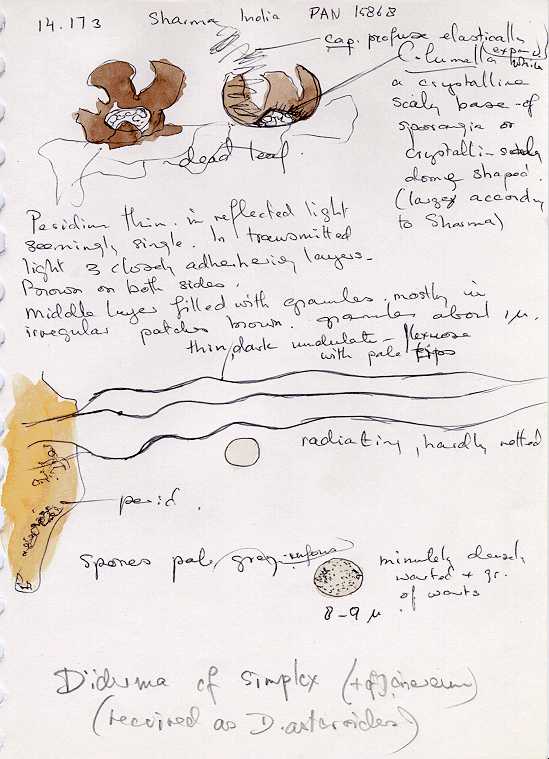 14.173 Sharma, India PAN 15868
cap. profuse elastically
Columella (expand) white
a crystalline
scaly base of
sporangia or
crystalli-
dome shaped.
(larger accordg
to Sharma)
dead leaf
Peridium thin, in reflected light
seemingly single. In transmitted
light 3 closely adherhering layers.
Brown on both sides.
Middle layer filled with granules, mostly in
irregular patches brown. granules about 1 µ.
thin, dark undulate - flexuose
with pale tips
radiating, hardly netted
perid.
spores pale grey-rufous
minutely densely
warted + gr.
of warts
8-9 µ
Diderma cf simplex
(received as D. asteroides)